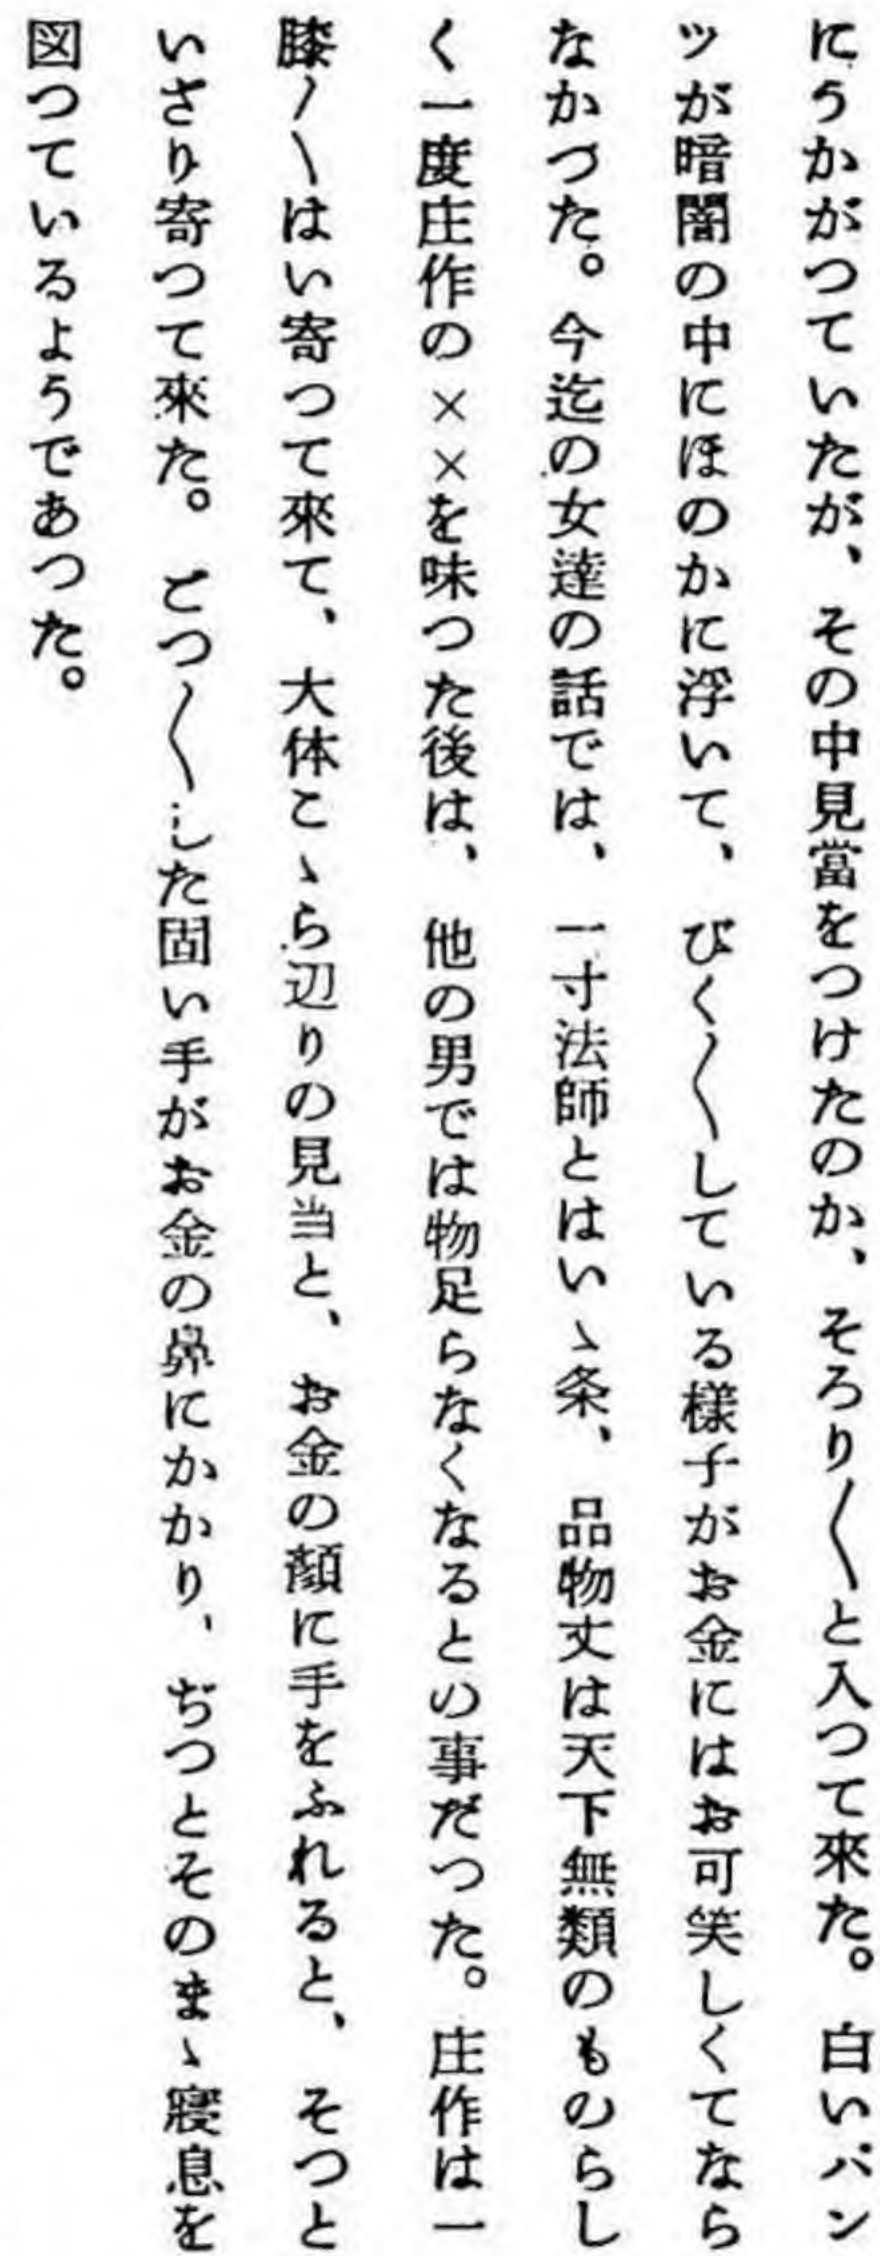 にうかがつていたが、その中見當をつけたのか、そろり〱と入つて來た。白いパン
ツが暗闇の中にほのかに浮いて、びく〱している様子がお金にはお可笑しくてなら
なかつた。今迄の女達の話では、一寸法師とはいゝ条、品物丈は天下無類のものらし
く一度庄作の××を味つた後は、他の男では物足らなくなるとの事だつた。庄作は一
膝〱はい寄つて來て、大体こゝら辺りの見当と、お金の顔に手をふれると、そつと
いざり寄つて來た。ごつ〱した固い手がお金の鼻にかかり、ぢつとそのまゝ寝息を
図つているようであつた。